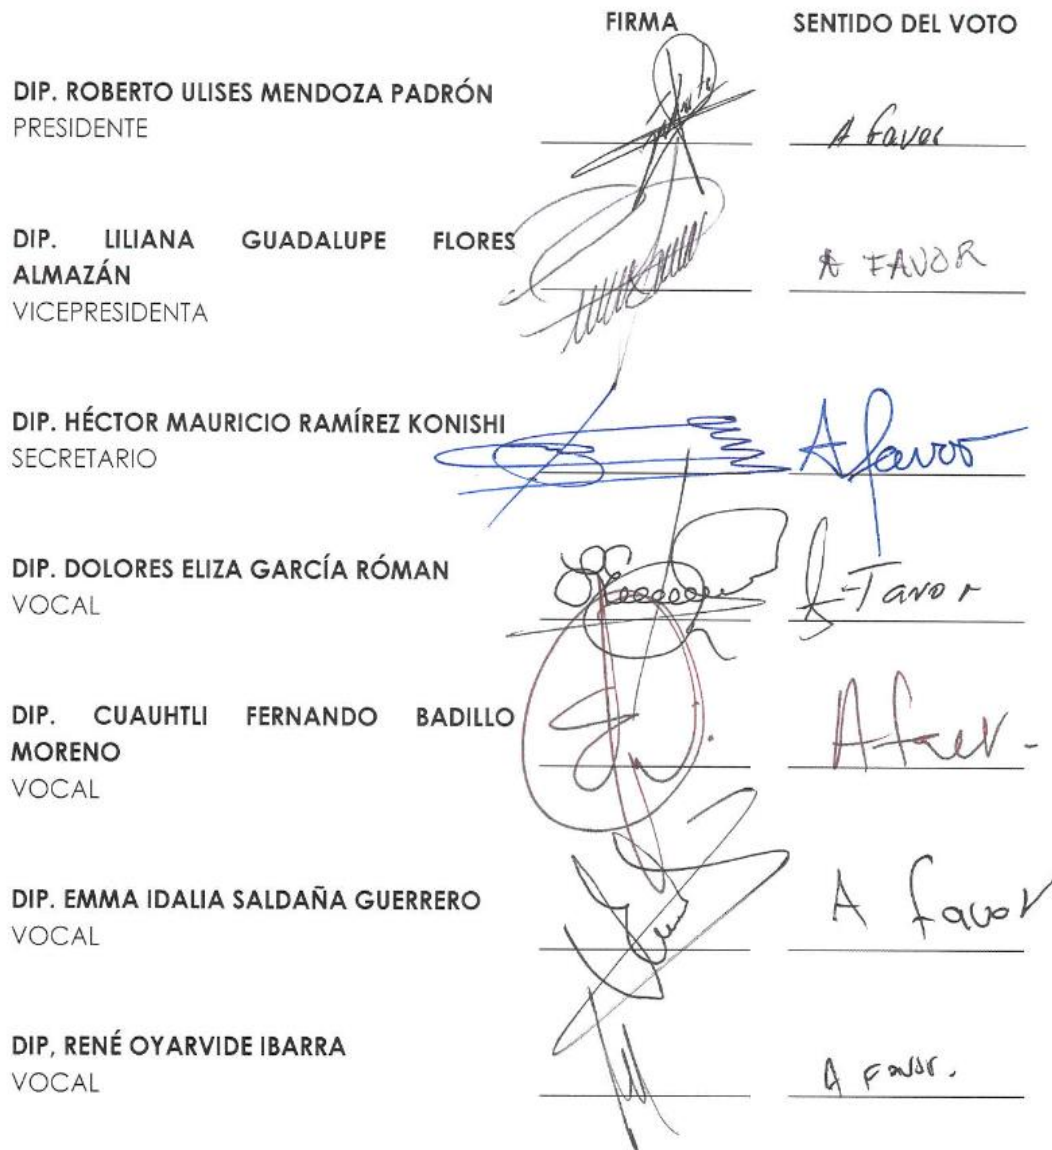 FIRMA SENTIDO DEL VOTO
DIP. ROBERTO ULISES MENDOZA PADRÓN
PRESIDENTE
A favor
DIP. LILIANA GUADALUPE FLORES
ALMAZÁN
VICEPRESIDENTA
A FAVOR
DIP. HÉCTOR MAURICIO RAMÍREZ KONISHI
SECRETARIO
A favor
DIP. DOLORES ELIZA GARCÍA RÓMAN
VOCAL
A Favor
DIP. CUAUHTLI FERNANDO BADILLO
MORENO
VOCAL
A favor.
DIP. EMMA IDALIA SALDAÑA GUERRERO
VOCAL
A favor
DIP, RENÉ OYARVIDE IBARRA
VOCAL
A Favor.